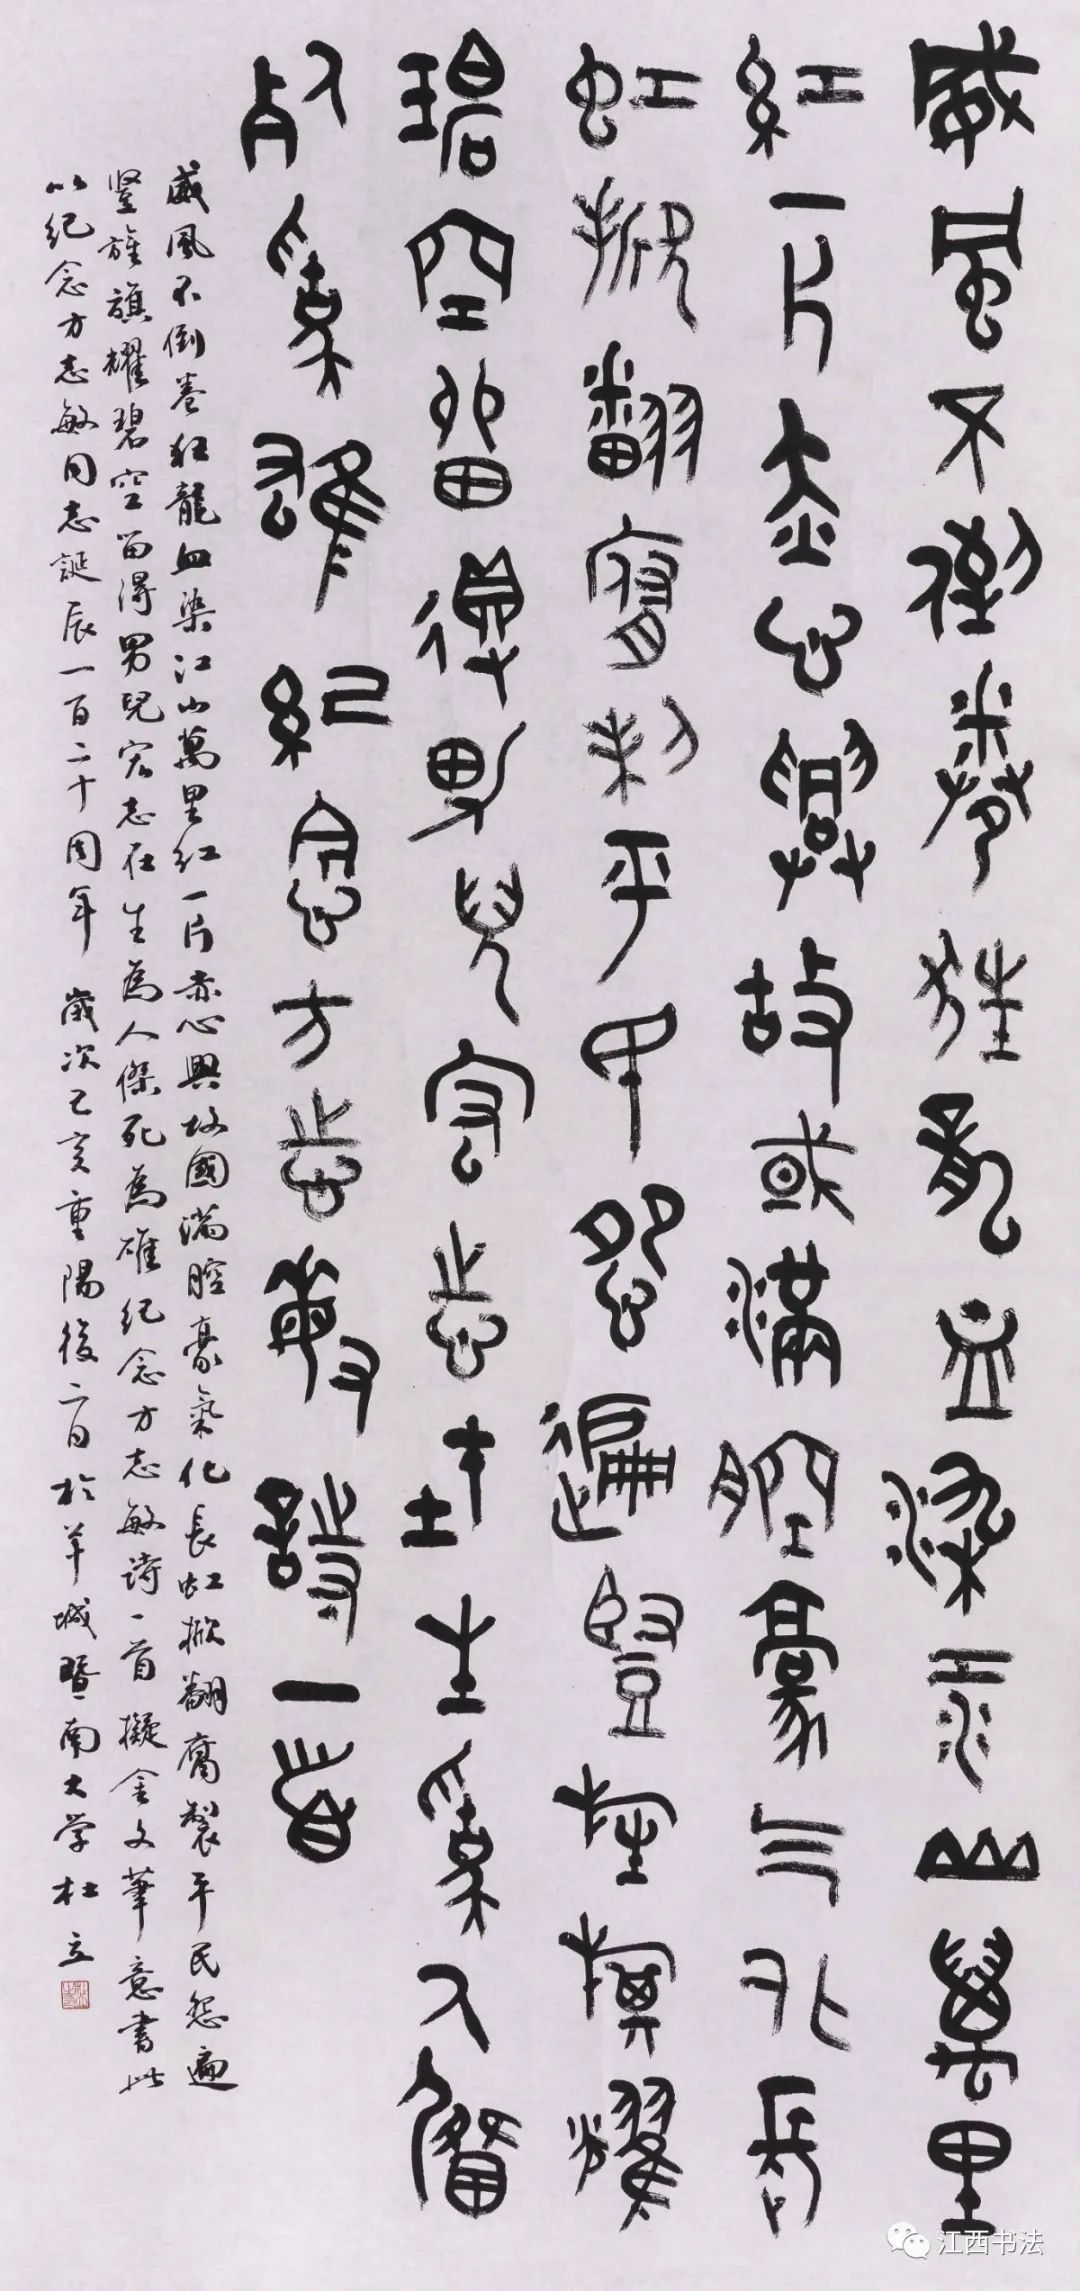 威風不倒卷狂龍血染江山萬里
紅一片赤心興故或滿腔豪气化長
虹掀翻腐制平民怨遍豎旌旗耀
碧空留得男兒宏志在生為人傑
死為雄紀念方志敏詩一首
威風不倒卷狂龍血染江山萬里紅一片赤心興故國滿腔豪氣化長虹掀翻腐製平民怨遍
豎旌旗耀碧空留得男兒宏志在生為人傑死為雄紀念方志敏詩一首擬金文筆意書此
以紀念方志敏同志誕辰一百二十周年 歲次己亥重陽後二日於羊城暨南大学杜立
江西书法